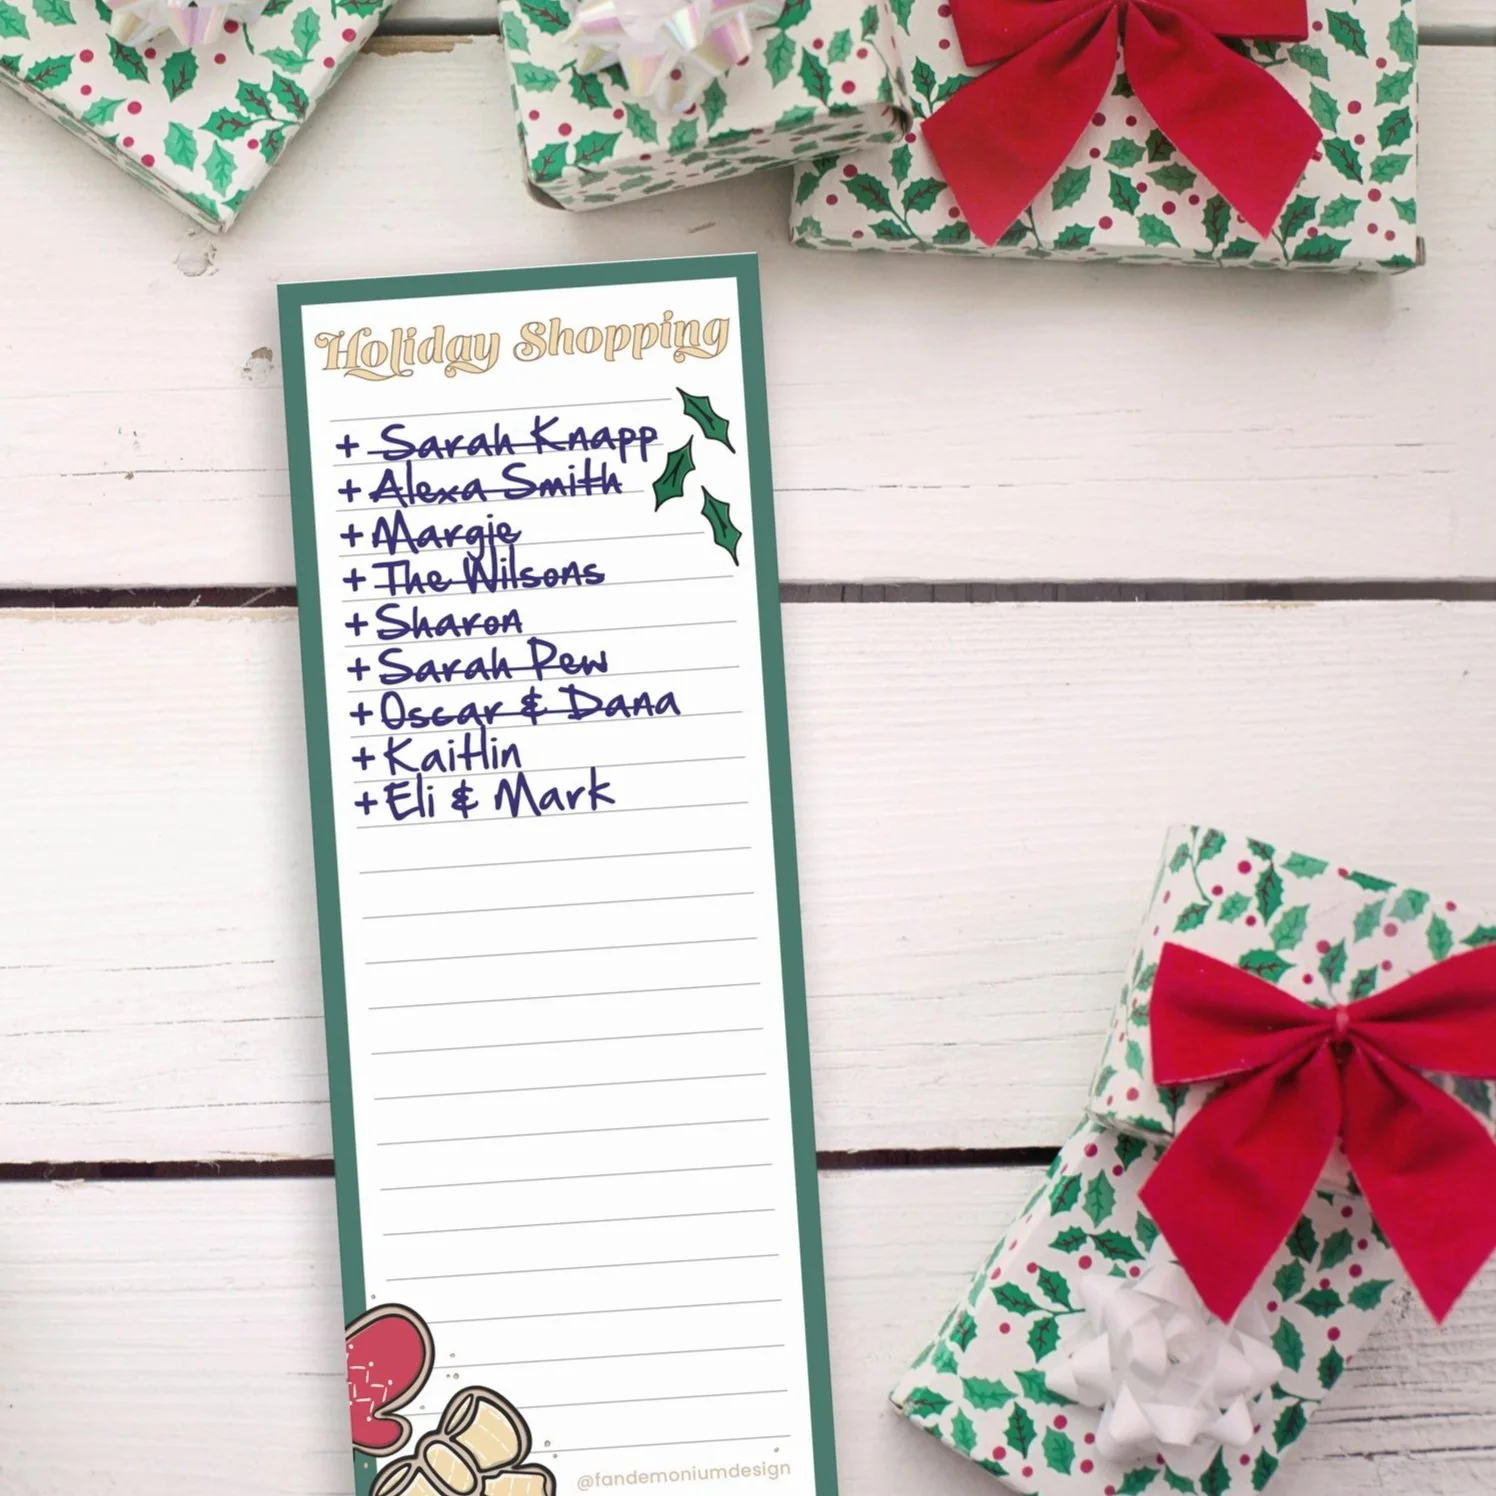 Holiday Shopping
+ Sarah Knapp
+ Alexa Smith
+ Margie
+ The Wilsons
+ Sharon
+ Sarah Pew
+ Oscar & Dana
+ Kaitlin
+ Eli & Mark
@fandemoniumdesign